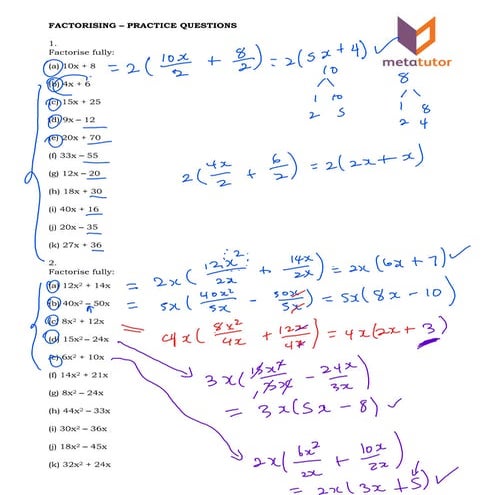 FACTORISING – PRACTICE QUESTIONS
metatutor
1.
Factorise fully:
(a) 10x + 8 = 2(10x/2 + 8/2) = 2(5x+4) ✓
10
1 10
2 5
8
1 8
2 4
(b) 4x + 6
(c) 15x + 25
(d) 9x – 12
(e) 20x + 70
(f) 33x – 55
2(4x/2 + 6/2) = 2(2x + x)
(g) 12x – 20
(h) 18x + 30
(i) 40x + 16
(j) 20x – 35
(k) 27x + 36
2.
Factorise fully:
(a) 12x² + 14x = 2x(12x²/2x + 14x/2x) = 2x(6x + 7) ✓
(b) 40x² – 50x = 5x(40x²/5x - 50x/5x) = 5x(8x - 10)
(c) 8x² + 12x = 4x(8x²/4x + 12x/4x) = 4x(2x + 3)
(d) 15x² – 24x
3x(15x²/3x - 24x/3x)
= 3x(5x - 8) ✓
(e) 6x² + 10x
(f) 14x² + 21x
(g) 8x² – 24x
(h) 44x² – 33x
(i) 30x² – 36x
(j) 18x² – 45x
(k) 32x² + 24x
2x(6x²/2x + 10x/2x)
= 2x(3x + 5) ✓